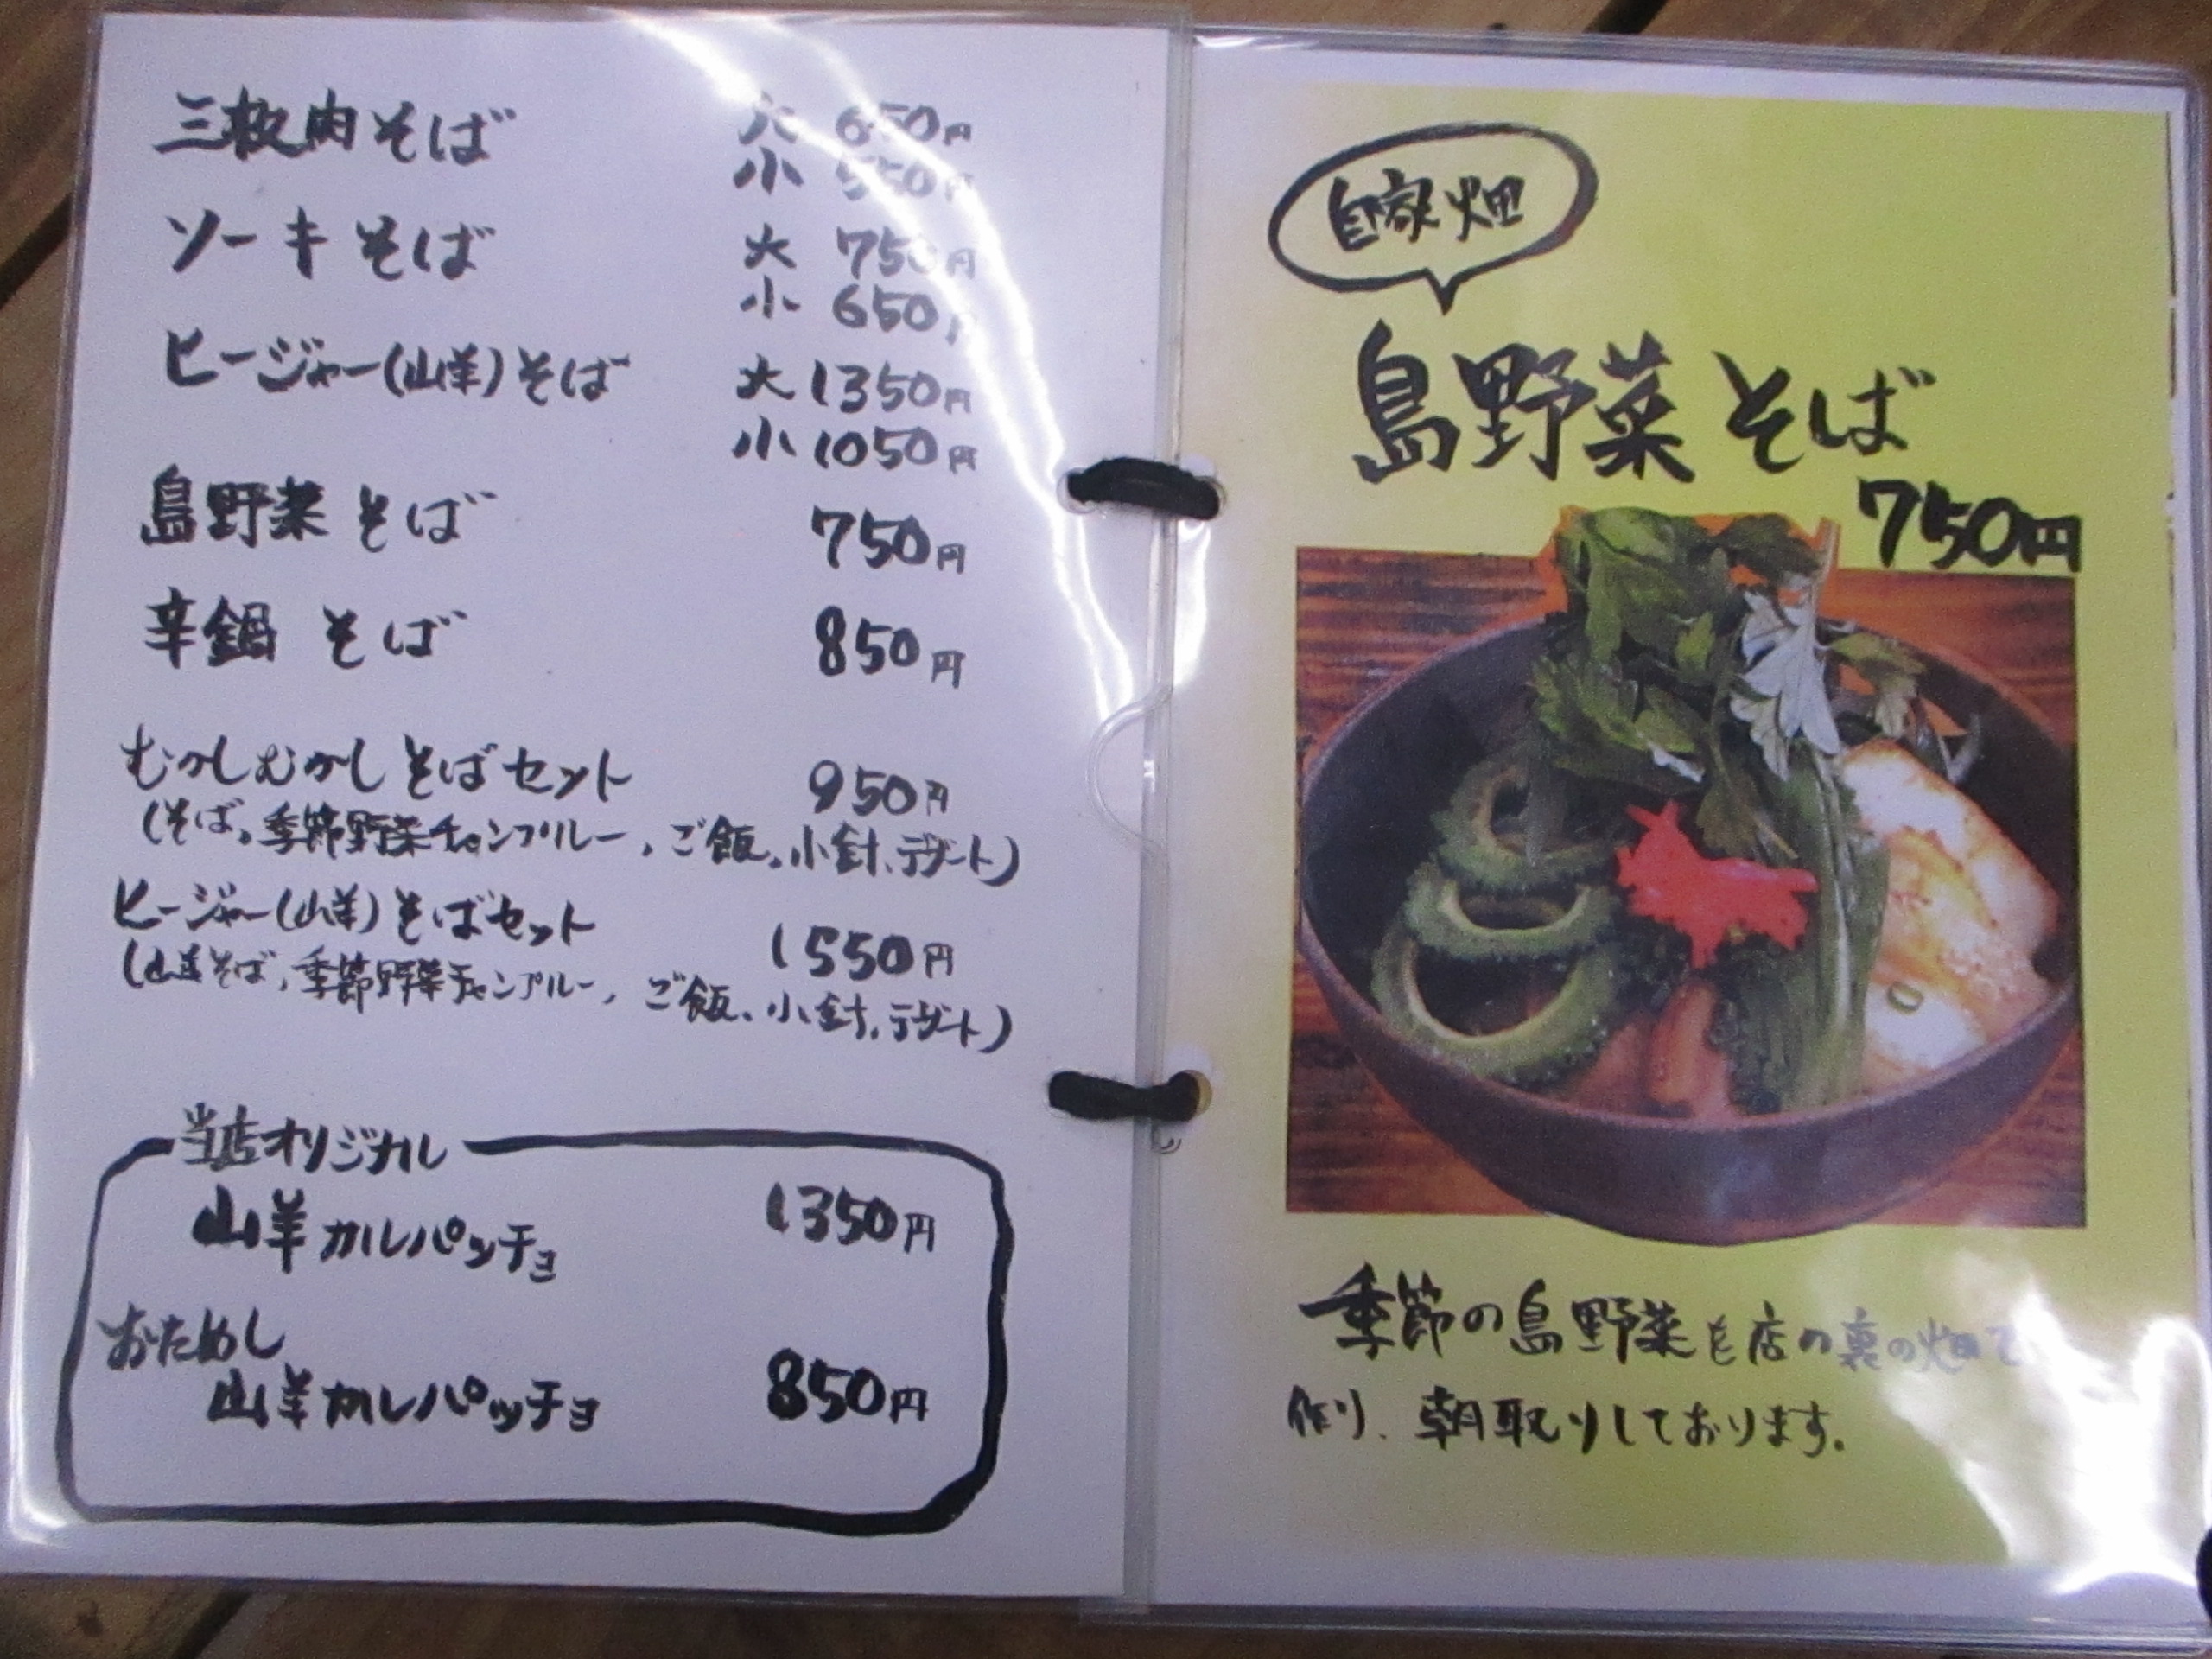 三枚肉そば 大 650円
小 550円
ソーキそば 大 750円
小 650円
ヒージャー(山羊)そば 大 1350円
小 1050円
島野菜そば 750円
辛鍋そば 850円
むかしむかしそばセット 950円
(そば、季節野菜チャンプルー、ご飯、小鉢、デザート)
ヒージャー(山羊)そばセット 1550円
(山羊そば、季節野菜チャンプルー、ご飯、小鉢、デザート)
当店オリジナル
山羊カルパッチョ 1350円
おためし
山羊カルパッチョ 850円
自家畑
島野菜そば
750円
季節の島野菜を店の裏の畑で
作り、朝取りしております。